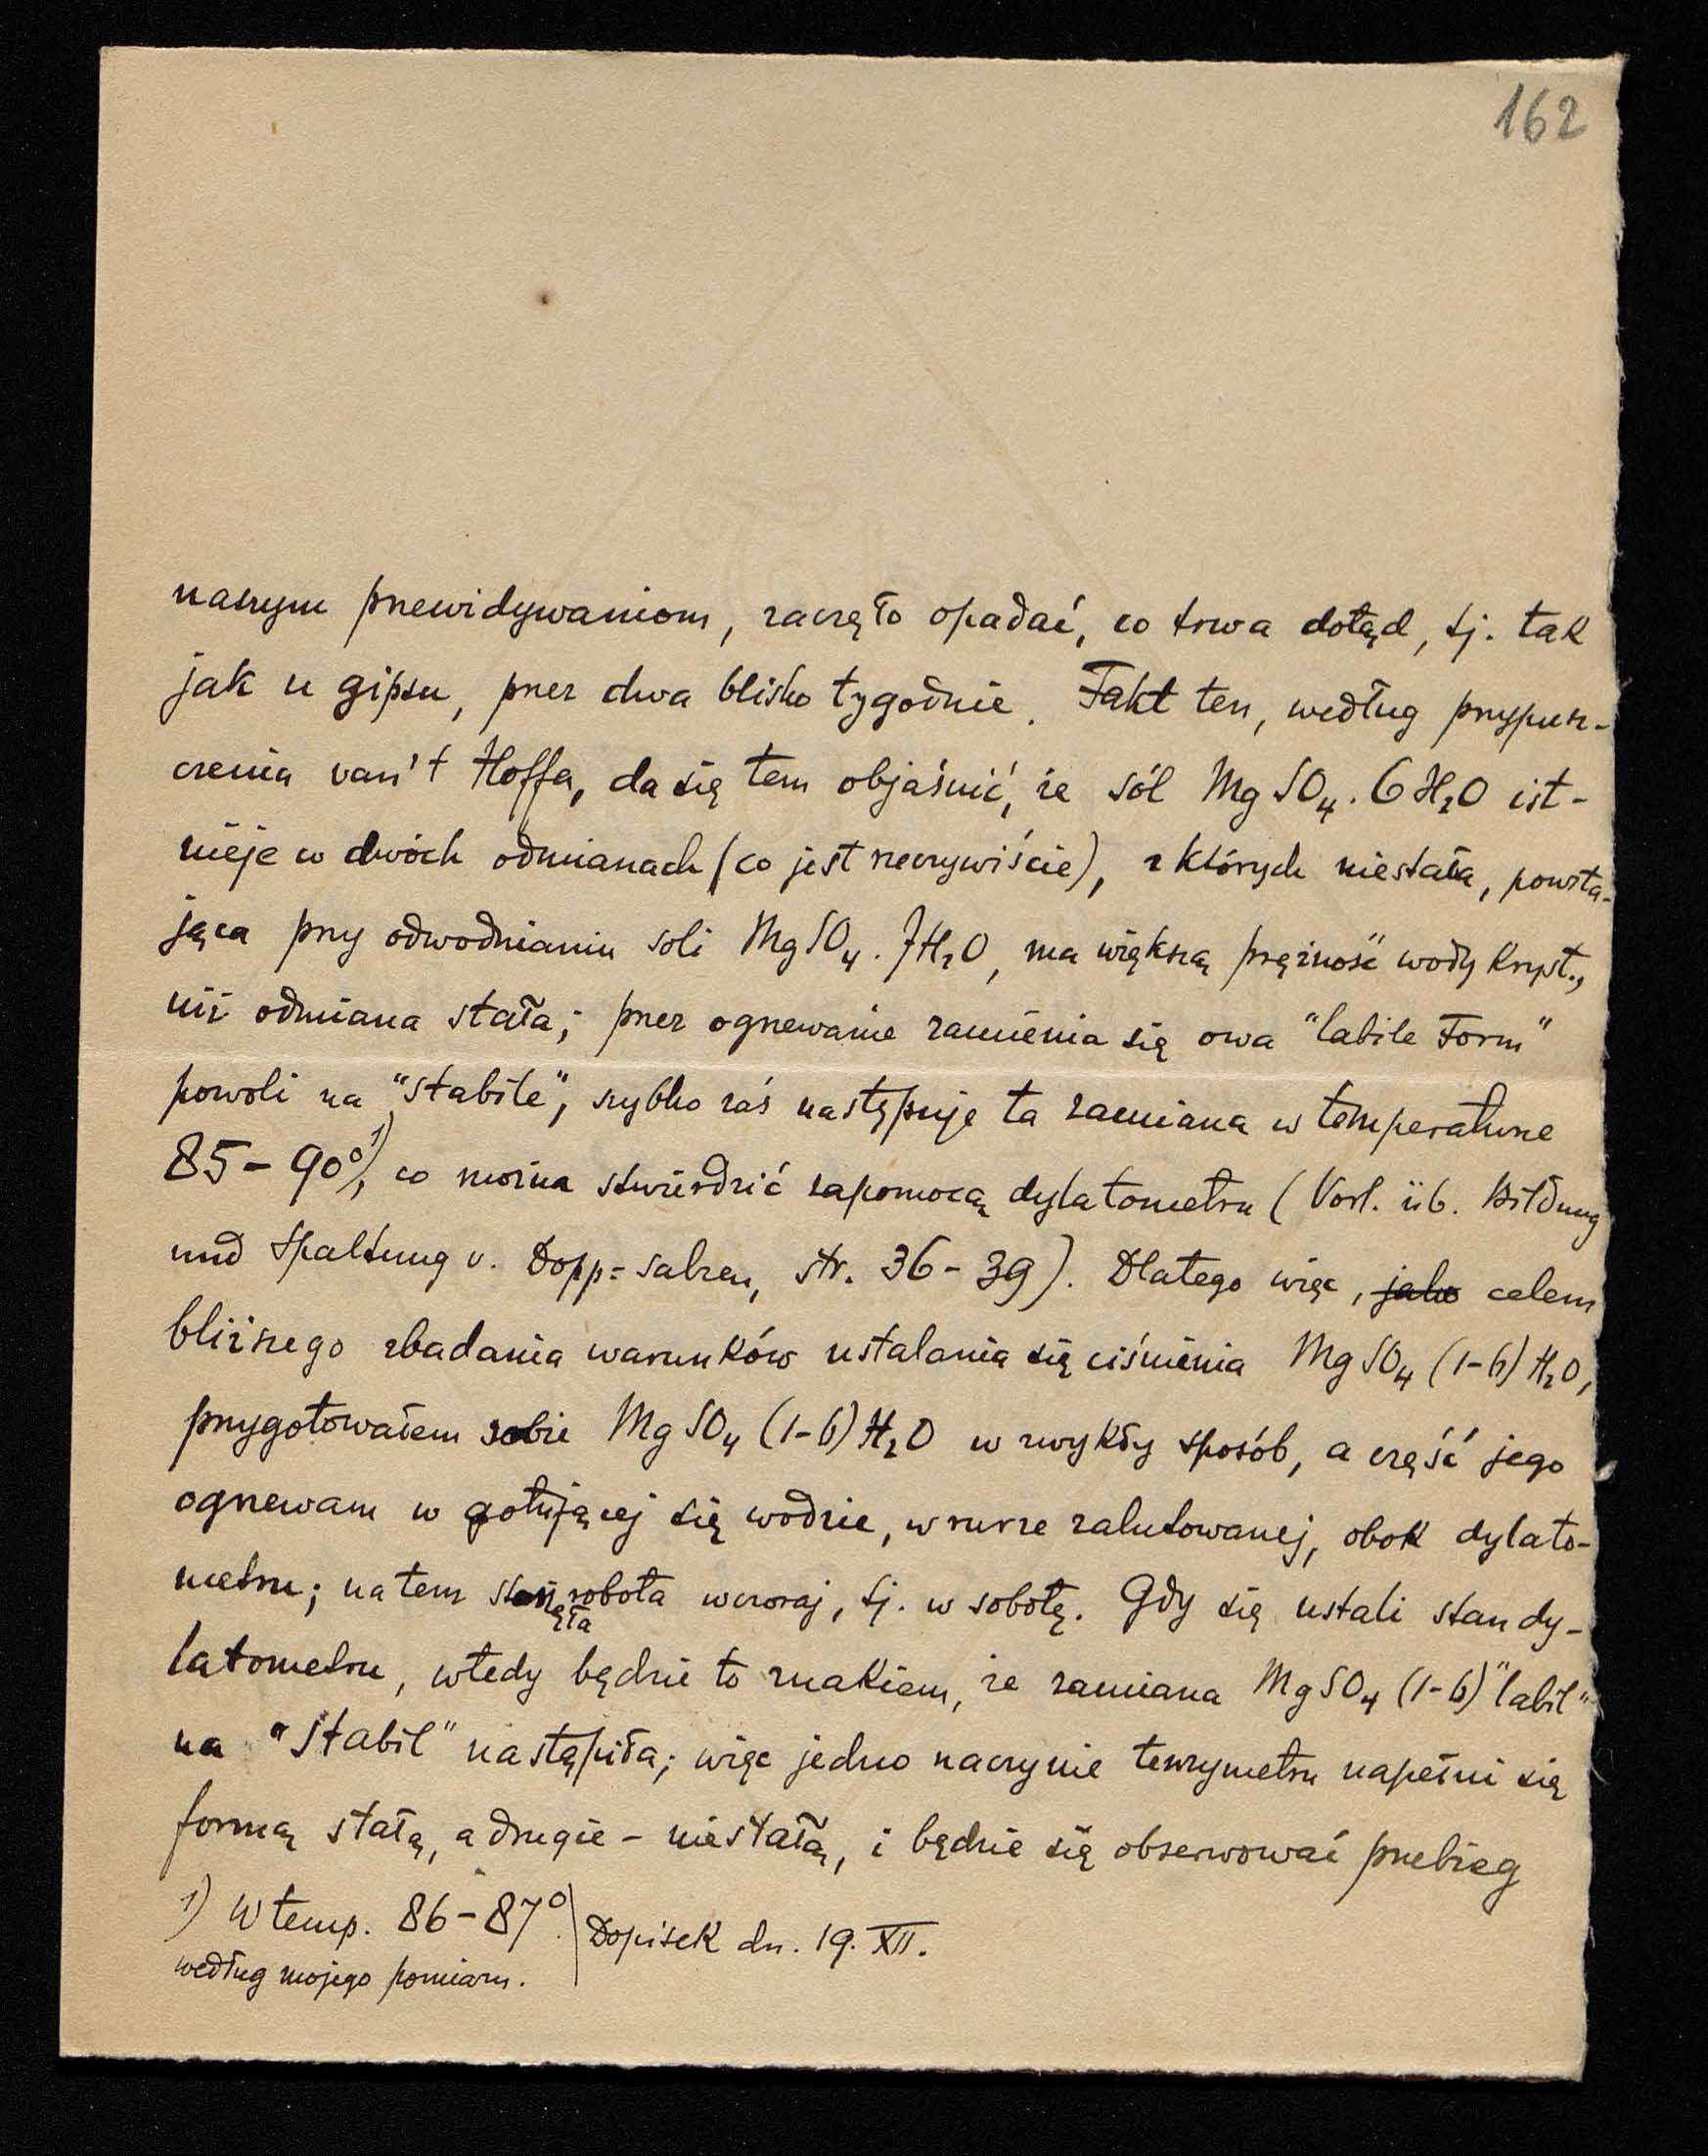 162
naszym przewidywaniom, zaczęło opadać, co trwa dotąd, tj. tak
jak u gipsu, przez dwa blisko tygodnie. Fakt ten, według przypusz-
czenia van't Hoffa, da się tem objaśnić, że sól MgSO₄. 6H₂O ist-
nieje w dwóch odmianach (co jest rzeczywiście), z których niestała, powsta-
jąca przy odwodnianiu soli MgSO₄. 7H₂O, ma większą prężność wody kryst.,
niż odmiana stała; przez ogrzewanie zamienia się owa "labile Form"
powoli na "stabile", szybko zaś następuje ta zamiana w temperaturze
85–90°¹⁾, co można stwierdzić zapomocą dylatometru (Vorl. üb. Bildung
und Spaltung v. Dopp=salzen, str. 36–39). Dlatego więc, jako celem
bliższego zbadania warunków ustalania się ciśnienia MgSO₄ (1–6) H₂O,
przygotowałem sobie MgSO₄ (1–6) H₂O w zwykły sposób, a część jego
ogrzewam w gotującej się wodzie, w rurze zalutowanej, obok dylato-
metru; na tem stanęła robota wczoraj, tj. w sobotę. Gdy się ustali stan dy-
latometru, wtedy będzie to znakiem, że zamiana MgSO₄ (1–6) "labil"
na "stabil" nastąpiła; więc jedno naczynie tenzymetru napełni się
formą stałą, a drugie – niestałą, i będzie się obserwować przebieg
1) W temp. 86–87°
według mojego pomiaru.
Dopisek dn. 19. XII.